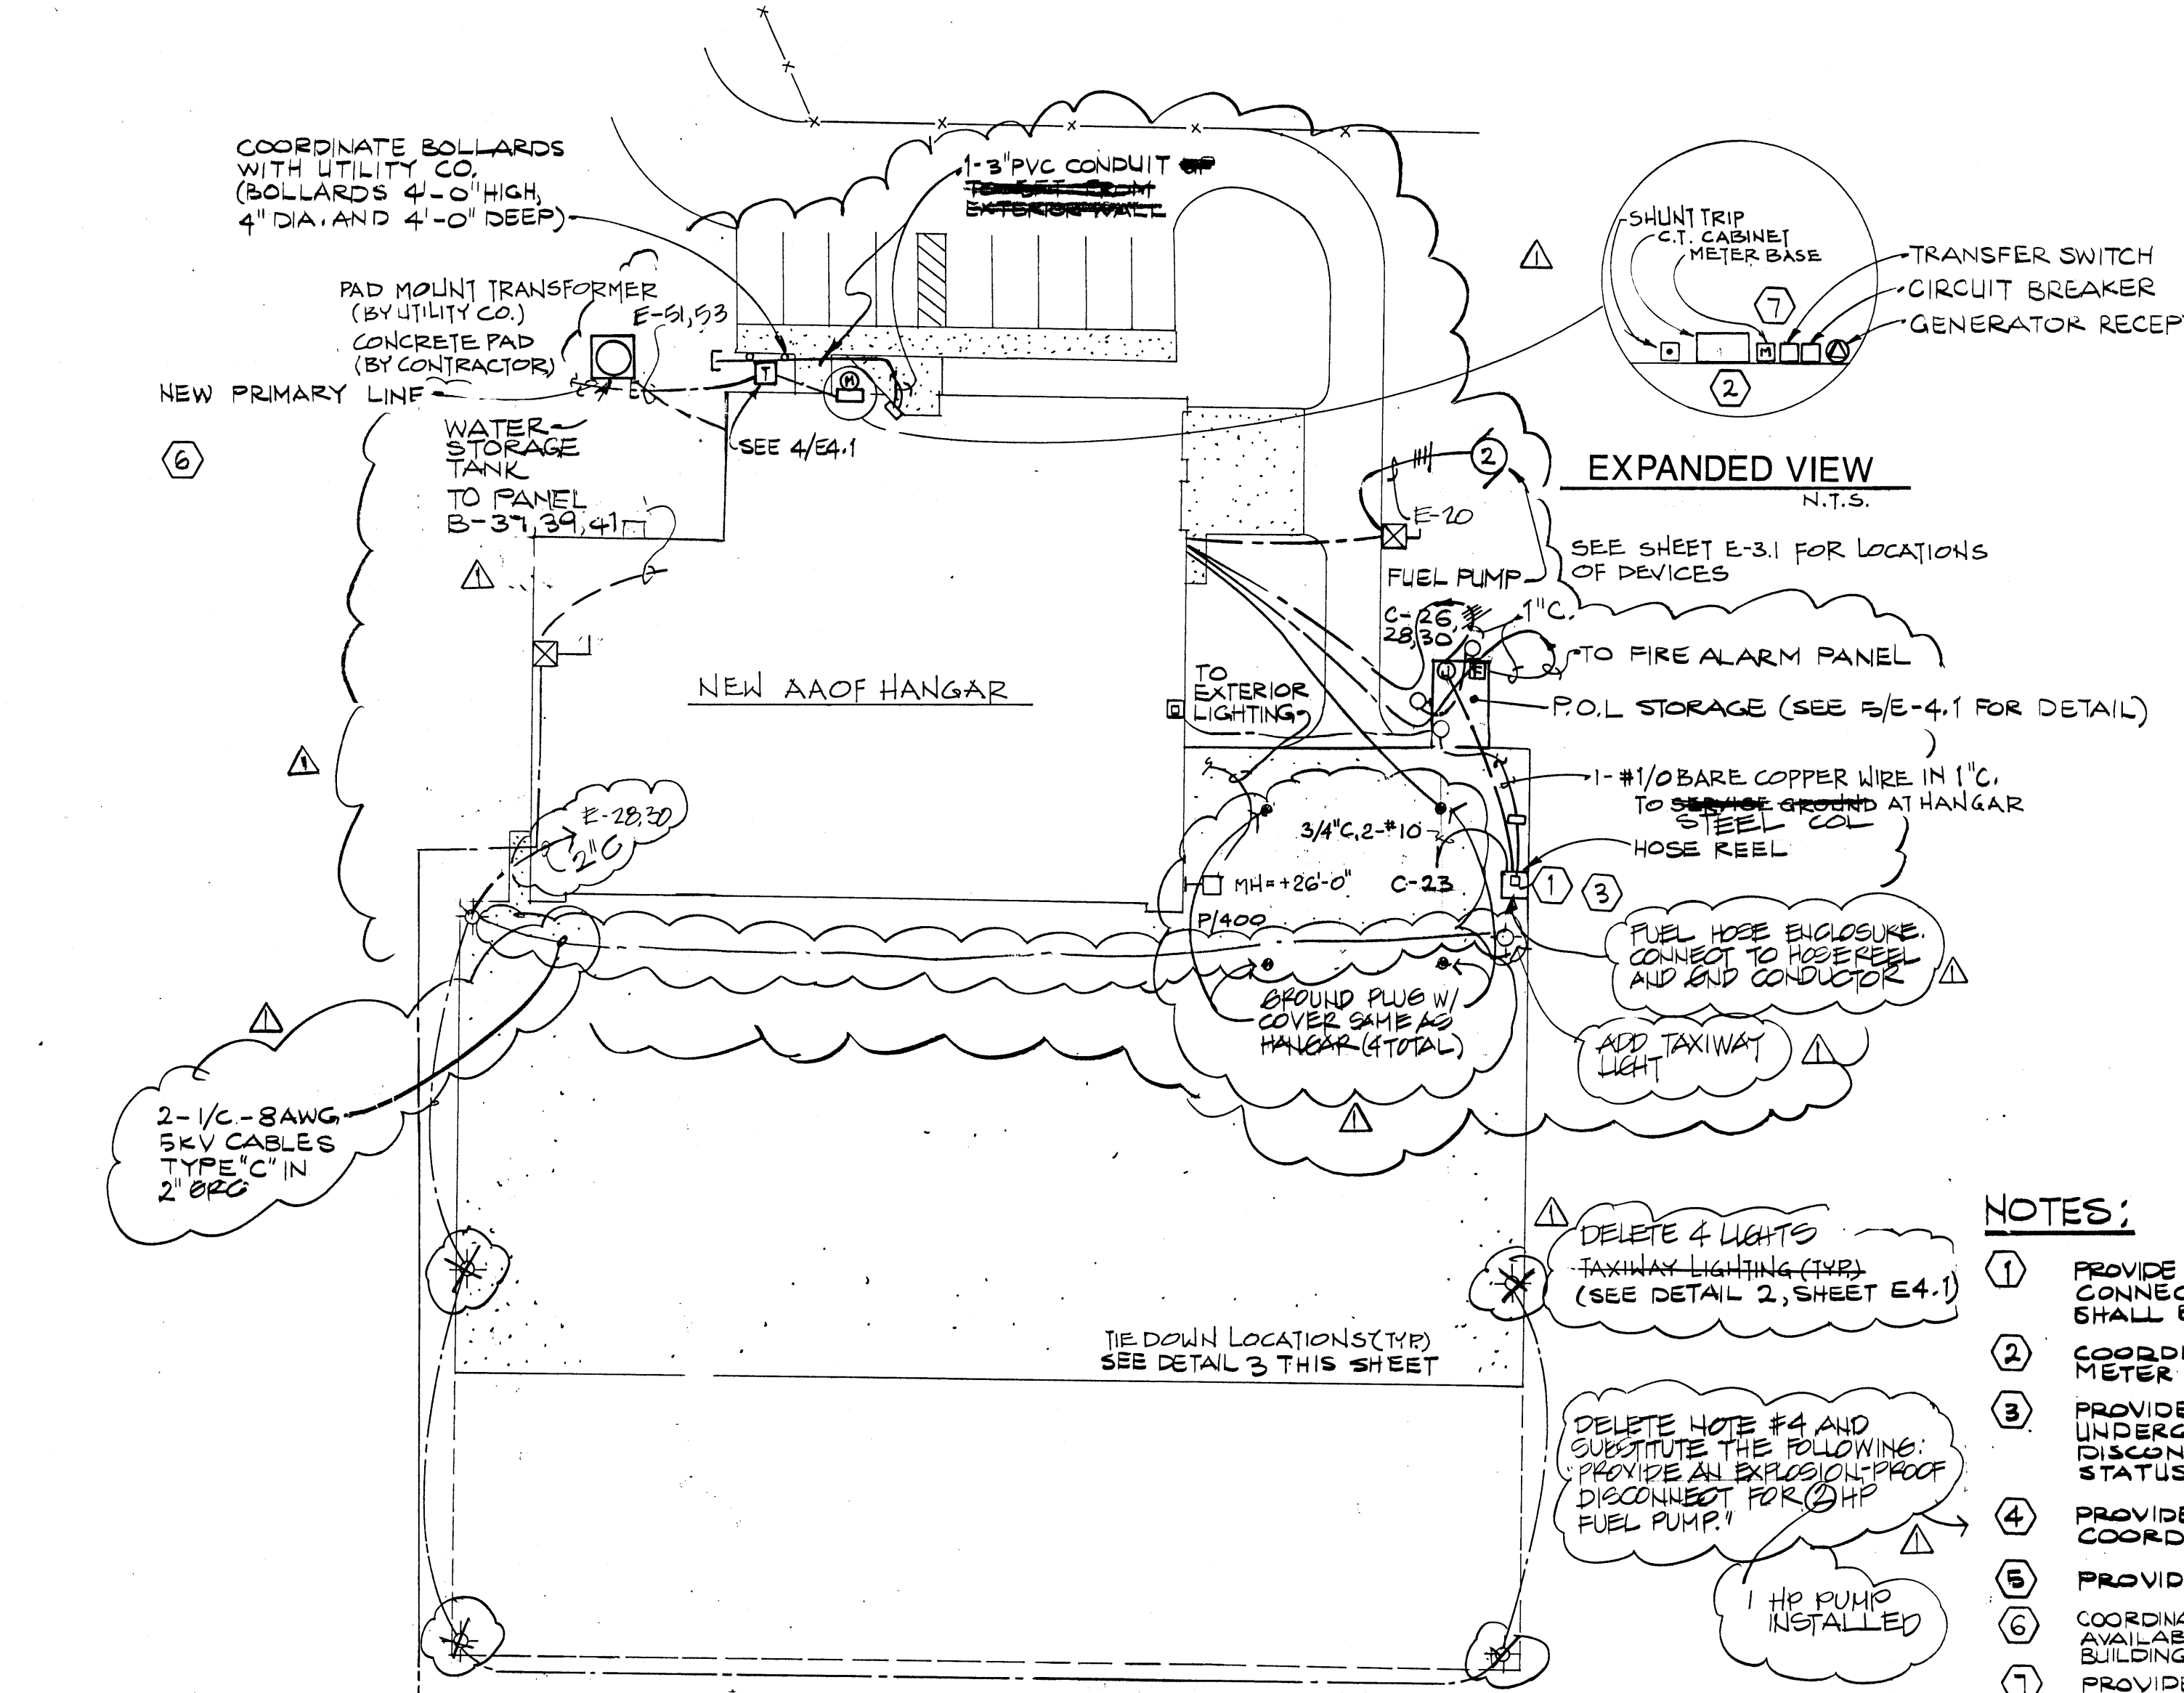 COORDINATE BOLLARDS
WITH UTILITY CO.
(BOLLARDS 4'-0" HIGH,
4" DIA. AND 4'-0" DEEP)
1-3" PVC CONDUIT UP
TO 5FT FROM
EXTERIOR WALL
PAD MOUNT TRANSFORMER
(BY UTILITY CO.)
CONCRETE PAD
(BY CONTRACTOR)
E-51,53
NEW PRIMARY LINE
6
WATER
STORAGE
TANK
TO PANEL
B-37,39,41
T
M
SEE 4/E4.1
1
SHUNT TRIP
C.T. CABINET
METER BASE
TRANSFER SWITCH
CIRCUIT BREAKER
GENERATOR RECEPT
7
M
2
EXPANDED VIEW
N.T.S.
2
E-20
SEE SHEET E-3.1 FOR LOCATIONS
OF DEVICES
FUEL PUMP
C-26,
28,30
1"C.
TO FIRE ALARM PANEL
J
F
P.O.L STORAGE (SEE 5/E-4.1 FOR DETAIL)
1
NEW AAOF HANGAR
TO
EXTERIOR
LIGHTING
1-#1/0 BARE COPPER WIRE IN 1"C.
TO SERVICE GROUND AT HANGAR
STEEL COL
HOSE REEL
1
E-28,30
2"C
3/4"C,2-#10
MH=+26'-0"
C-23
1
3
P/400
FUEL HOSE ENCLOSURE.
CONNECT TO HOSE REEL
AND GND CONDUCTOR
1
GROUND PLUG W/
COVER SAME AS
HANGAR (4 TOTAL)
1
ADD TAXIWAY
LIGHT
1
1
2-1/C-8AWG,
5KV CABLES
TYPE "C" IN
2" GRC
1
DELETE 4 LIGHTS
TAXIWAY LIGHTING (TYP.)
(SEE DETAIL 2, SHEET E4.1)
TIE DOWN LOCATIONS (TYP.)
SEE DETAIL 3 THIS SHEET
DELETE NOTE #4 AND
SUBSTITUTE THE FOLLOWING:
"PROVIDE AN EXPLOSION-PROOF
DISCONNECT FOR 2 HP
FUEL PUMP."
1
1 HP PUMP
INSTALLED
NOTES:
1 PROVIDE
CONNEC
SHALL B
2 COORDI
METER
3 PROVIDE
UNDERG
DISCON
STATUS
4 PROVIDE
COORD
5 PROVID
6 COORDINA
AVAILAB
BUILDING
7 PROVIDE